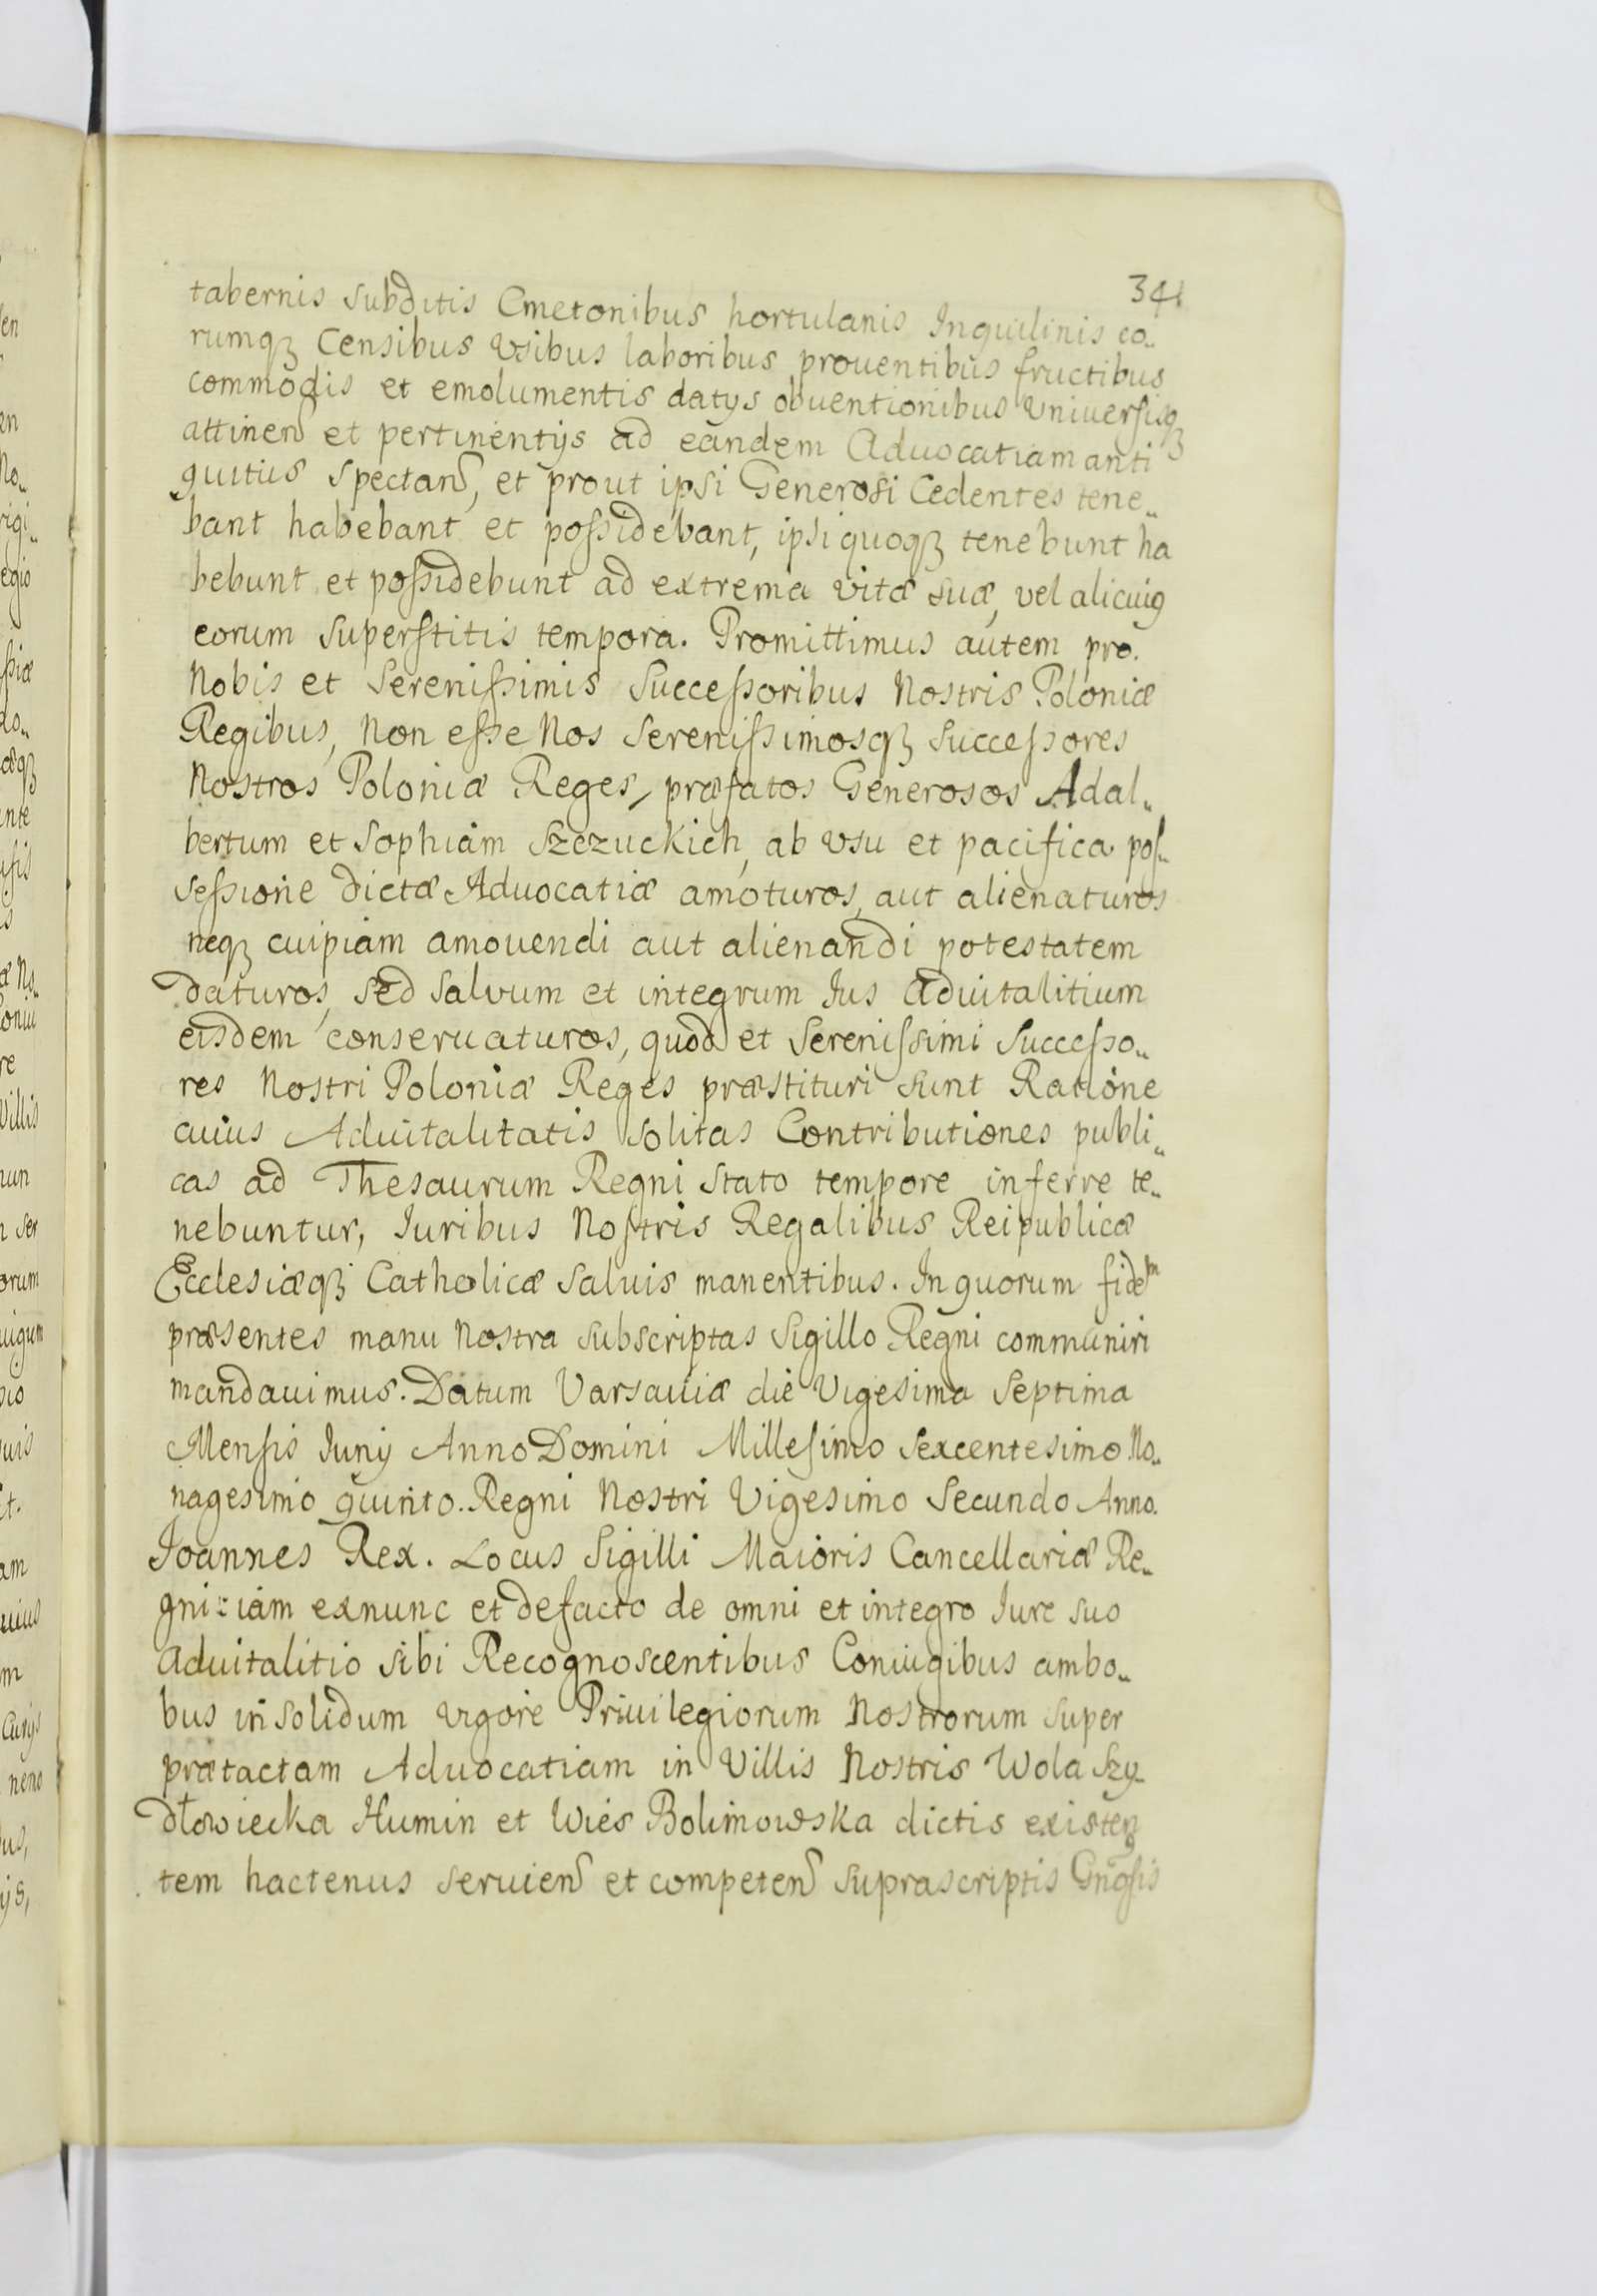 341
tabernis subditis Cmetonibus hortulanis Inquilinis eo„
rumqꝫ Censibus Vsibus laboribus prouentibus fructibus
commodis et emolumentis datys obuentionibus Vniuersisqꝫ
attinen et pertinentijs ad eandem Aduocatiam anti
quitus spectan, et prout ipsi Generosi Cedentes tene„
bant habebant et possidebant, ipsi quoqꝫ tenebunt ha
bebunt et possidebunt ad extrema vitæ suæ, vel alicuiꝯ
eorum superstitis tempora. Promittimus autem pro.
Nobis et Serenissimis Successoribus Nostris Poloniæ
Regibus, Non esse Nos Serenissimosqꝫ Successores
Nostros Poloniæ Reges, præfatos Generosos Adal„
bertum et Sophiam Szczuckich, ab vsu et pacifica pos„
sessione dictæ Aduocatiæ amoturos, aut alienaturos
neqꝫ cuipiam amouendi aut alienandi potestatem
daturos, sed salvum et integrum Ius aduitalitium
eisdem conseruaturos, quod et Serenissimi Successo„
res Nostri Poloniæ Reges præstituri sunt Ratione
cuius Aduitalitatis solitas Contributiones publi„
cas ad Thesaurum Regni stato tempore inferre te„
nebuntur, Iuribus Nostris Regalibus Reipublicæ
Ecclesiæqꝫ Catholicæ saluis manentibus. In quorum fidem
præsentes manu Nostra subscriptas Sigillo Regni communiri
mandauimus. Datum Varsauiæ die Vigesima Septima
Mensis Iunij Anno Domini Millesimo Sexcentesimo No„
nagesimo quinto. Regni Nostri Vigesimo Secundo Anno.
Ioannes Rex. Locus Sigilli Maioris Cancellariæ Re„
gni: iam exnunc et defacto de omni et integro Iure suo
aduitalitio sibi Recognoscentibus Coniugibus ambo„
bus in solidum vigore Priuilegiorum Nostrorum super
prætactam Aduocatiam in Villis Nostris Wola Szy„
dłowiecka Humin et Wies Bolimowska dictis existen
tem hactenus seruien et competen suprascriptis Gnosis